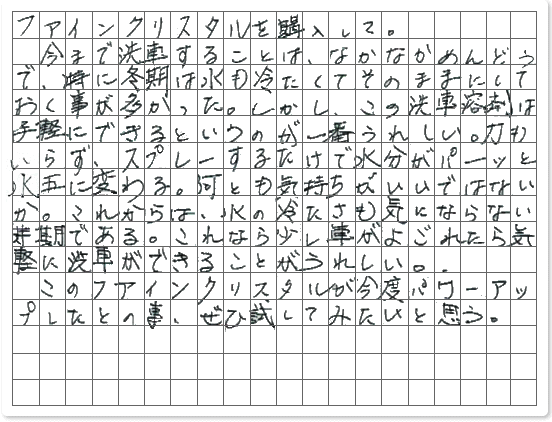 ファインクリスタルを購入して。
今まで洗車することは、なかなかめんどう
で、特に冬期は水も冷たくてそのままにして
おく事が多かった。しかし、この洗車溶剤は
手軽にできるというのが一番うれしい。力も
いらず、スプレーするだけで水分がパーッと
水玉に変わる。何とも気持ちがいいではない
か。これからは、水の冷たさも気にならない
時期である。これなら少し車がよごれたら気
軽に洗車ができることがうれしい。
このファインクリスタルが今度パワーアッ
プしたとの事、ぜひ試してみたいと思う。